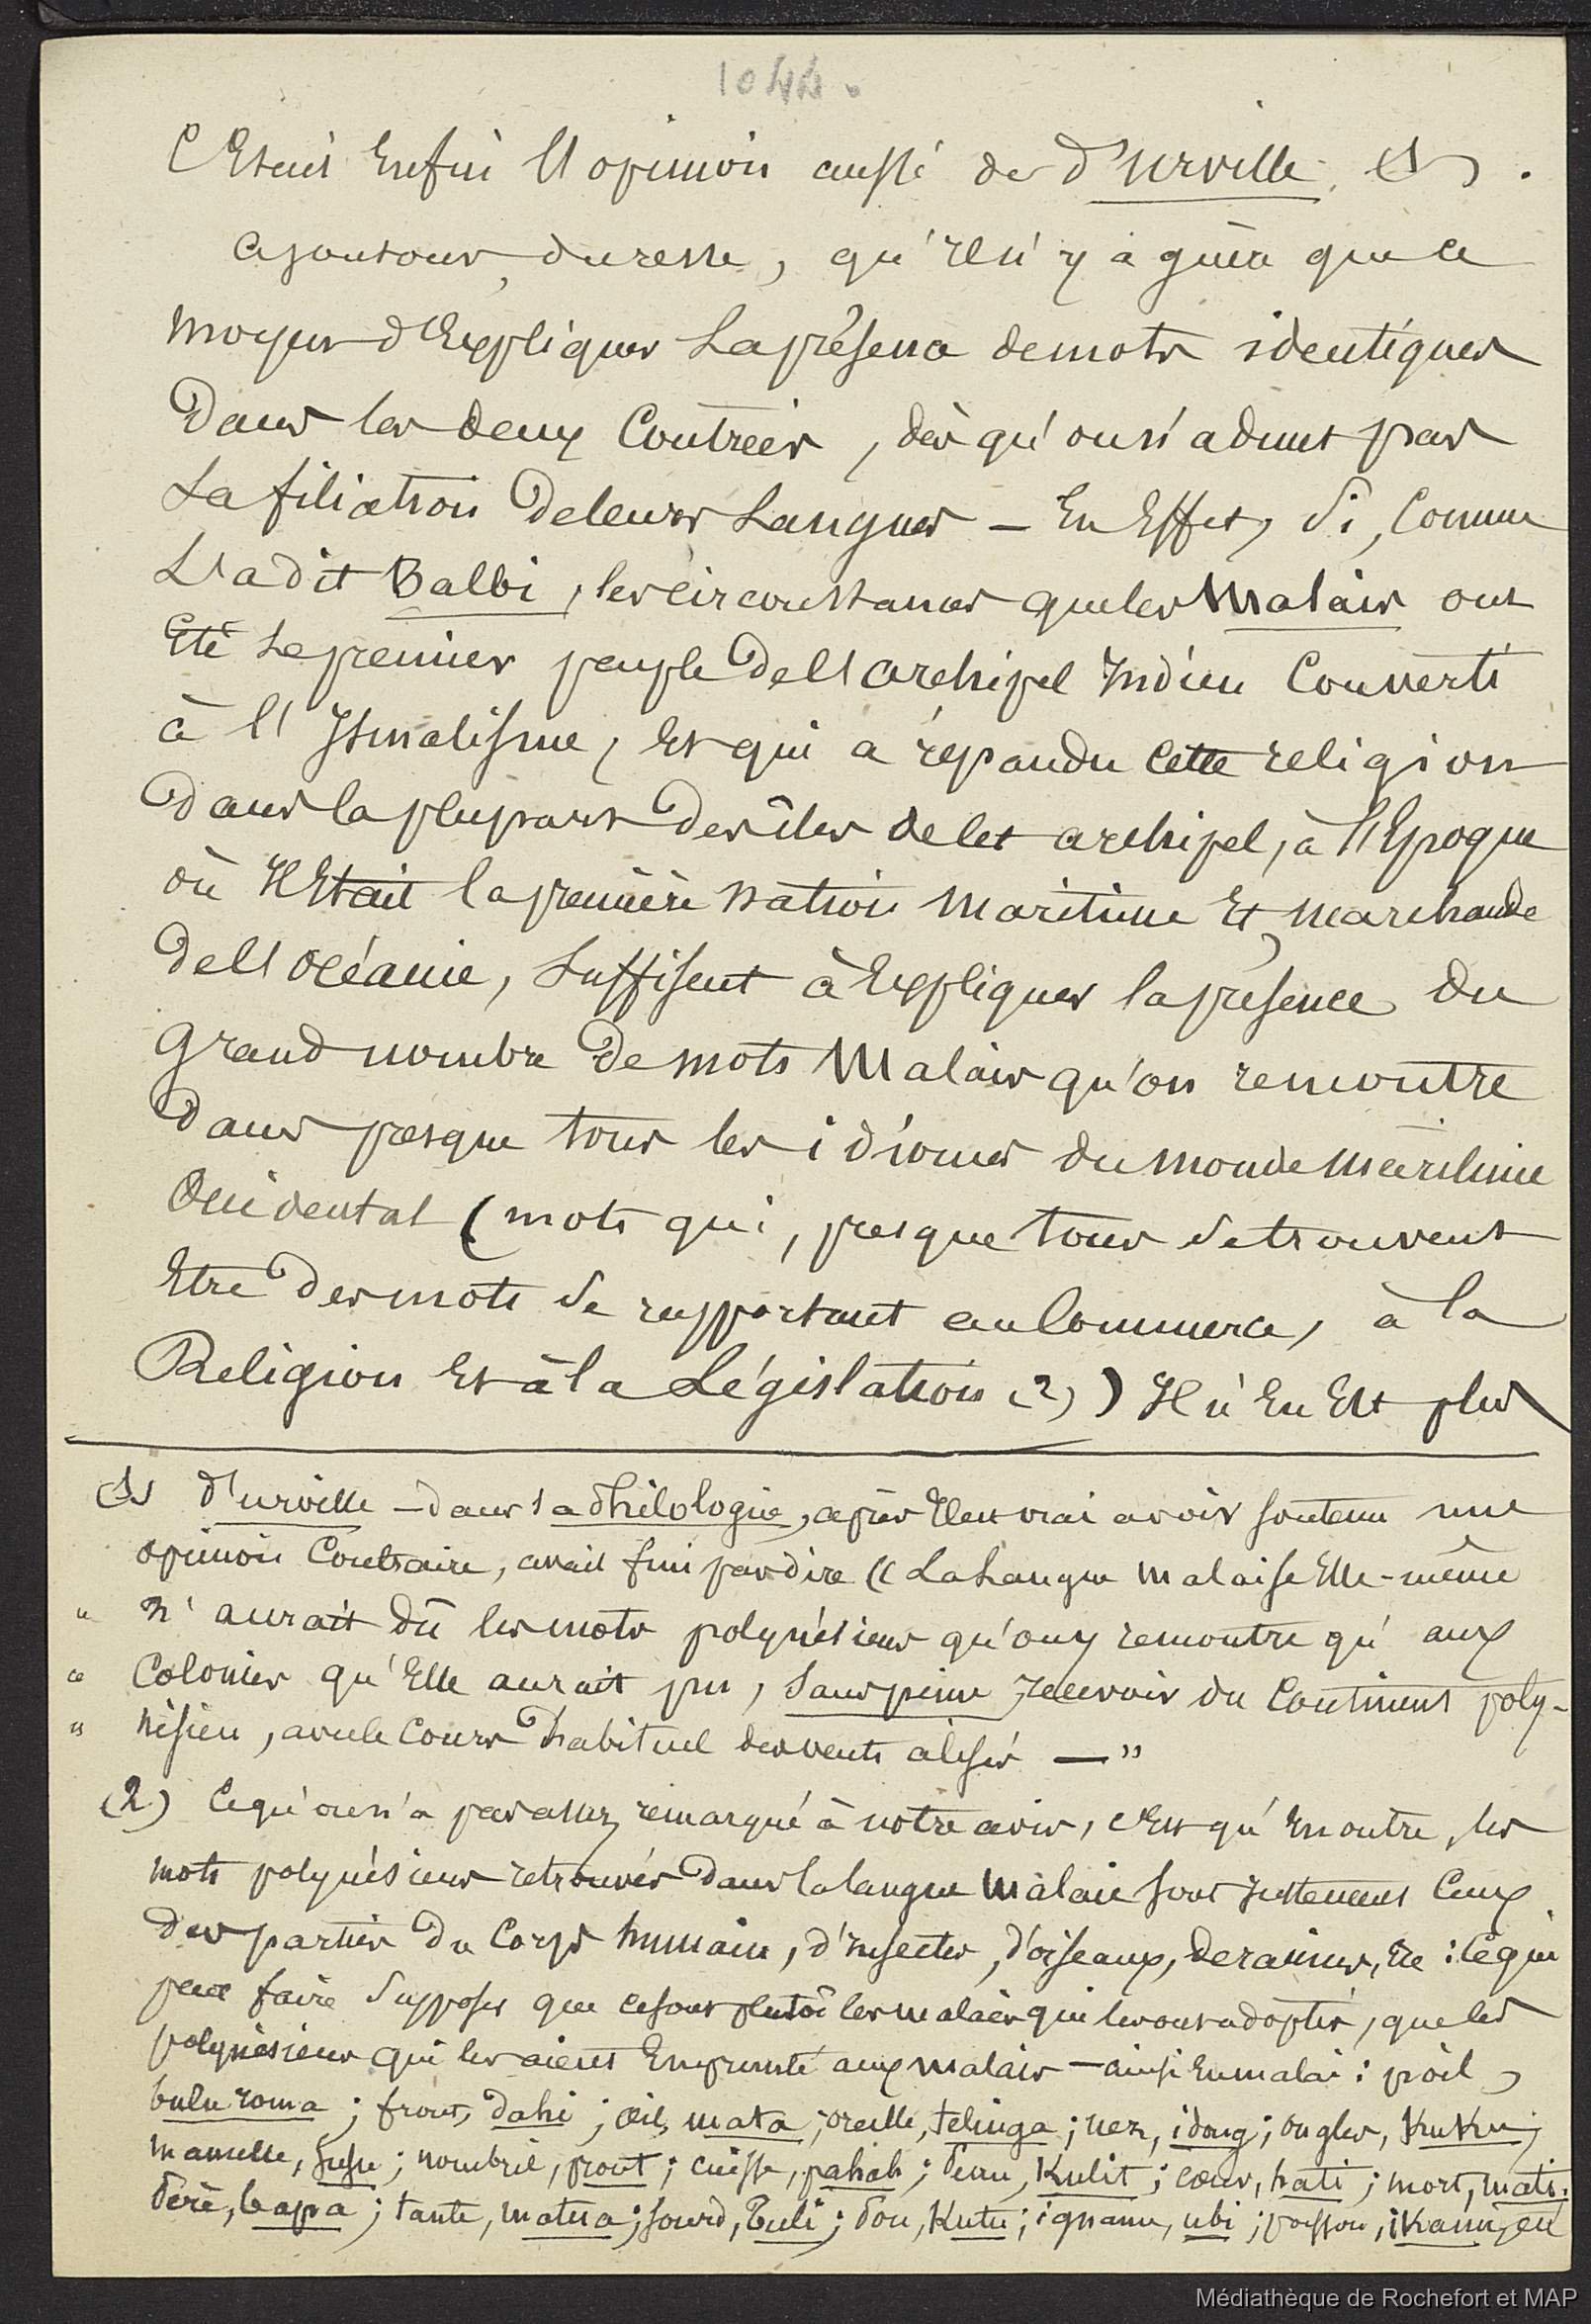 1044.
C'était Enfin l'opinion aussi de d'Urville (1).
Ajoutons, du reste, qu'il n'y a guère que ce
moyen d'Expliquer la présence de mots identiques
Dans les deux Contrées, dès qu'on n'admet pas
La filiation De leurs Langues — En Effet, Si, Comme
L'a dit Balbi, les circonstances que les Malais ont
Eté Le premier peuple De l'archipel Indien Converti
à l'Ismalisme, Et qui a répandu cette religion
Dans la plupart Des îles de cet archipel, à l'Epoque
où Il Etait la première nation maritime Et marchande
De l'océanie, Suffisent à Expliquer la présence Du
Grand nombre De mots Malais qu'on rencontre
Dans presque tous les idiomes du monde maritime
Occidental (mots qui, presque tous Se trouvent
Etre Des mots Se rapportant au Commerce, à la
Religion Et à la Législation (2)) Il n'En Est plus
(1) d'Urville — dans sa Philologie, après Il est vrai avoir soutenu une
opinion Contraire, avait fini par dire « La Langue malaise Elle-même
" n'aurait Dû les mots polynésiens qu'on y rencontre qu'aux
" Colonies qu'Elle aurait pu, Sans peine recevoir du Continent poly-
" nésien, avec le Cours habituel des vents alisés — "
(2) Ce qu'on n'a pas assez remarqué à notre avis, c'Est qu'En outre, les
mots polynésiens retrouvés Dans la langue Malaie Sont justement Ceux
des parties Du Corps humain, d'insectes, d'oiseaux, de racines, Etc : Ce qui
peut faire Supposer que ce sont plutôt les malais qui les ont adoptés, que les
polynésiens qui les aient Emprunté aux malais — ainsi En malai : poil,
bulu roma ; front, dahi ; œil, mata ; oreille, telinga ; nez, idong ; ongles, KuKu ;
mamelle, susu ; nombril, prout ; cuisse, pahah ; Peau, Kulit ; cœur, hati ; mort, mati.
Père, bapa ; tante, matua ; sourd, Tuli ; Pou, Kutu ; ignamu, ubi ; poisson, iKann, en
Médiathèque de Rochefort et MAP